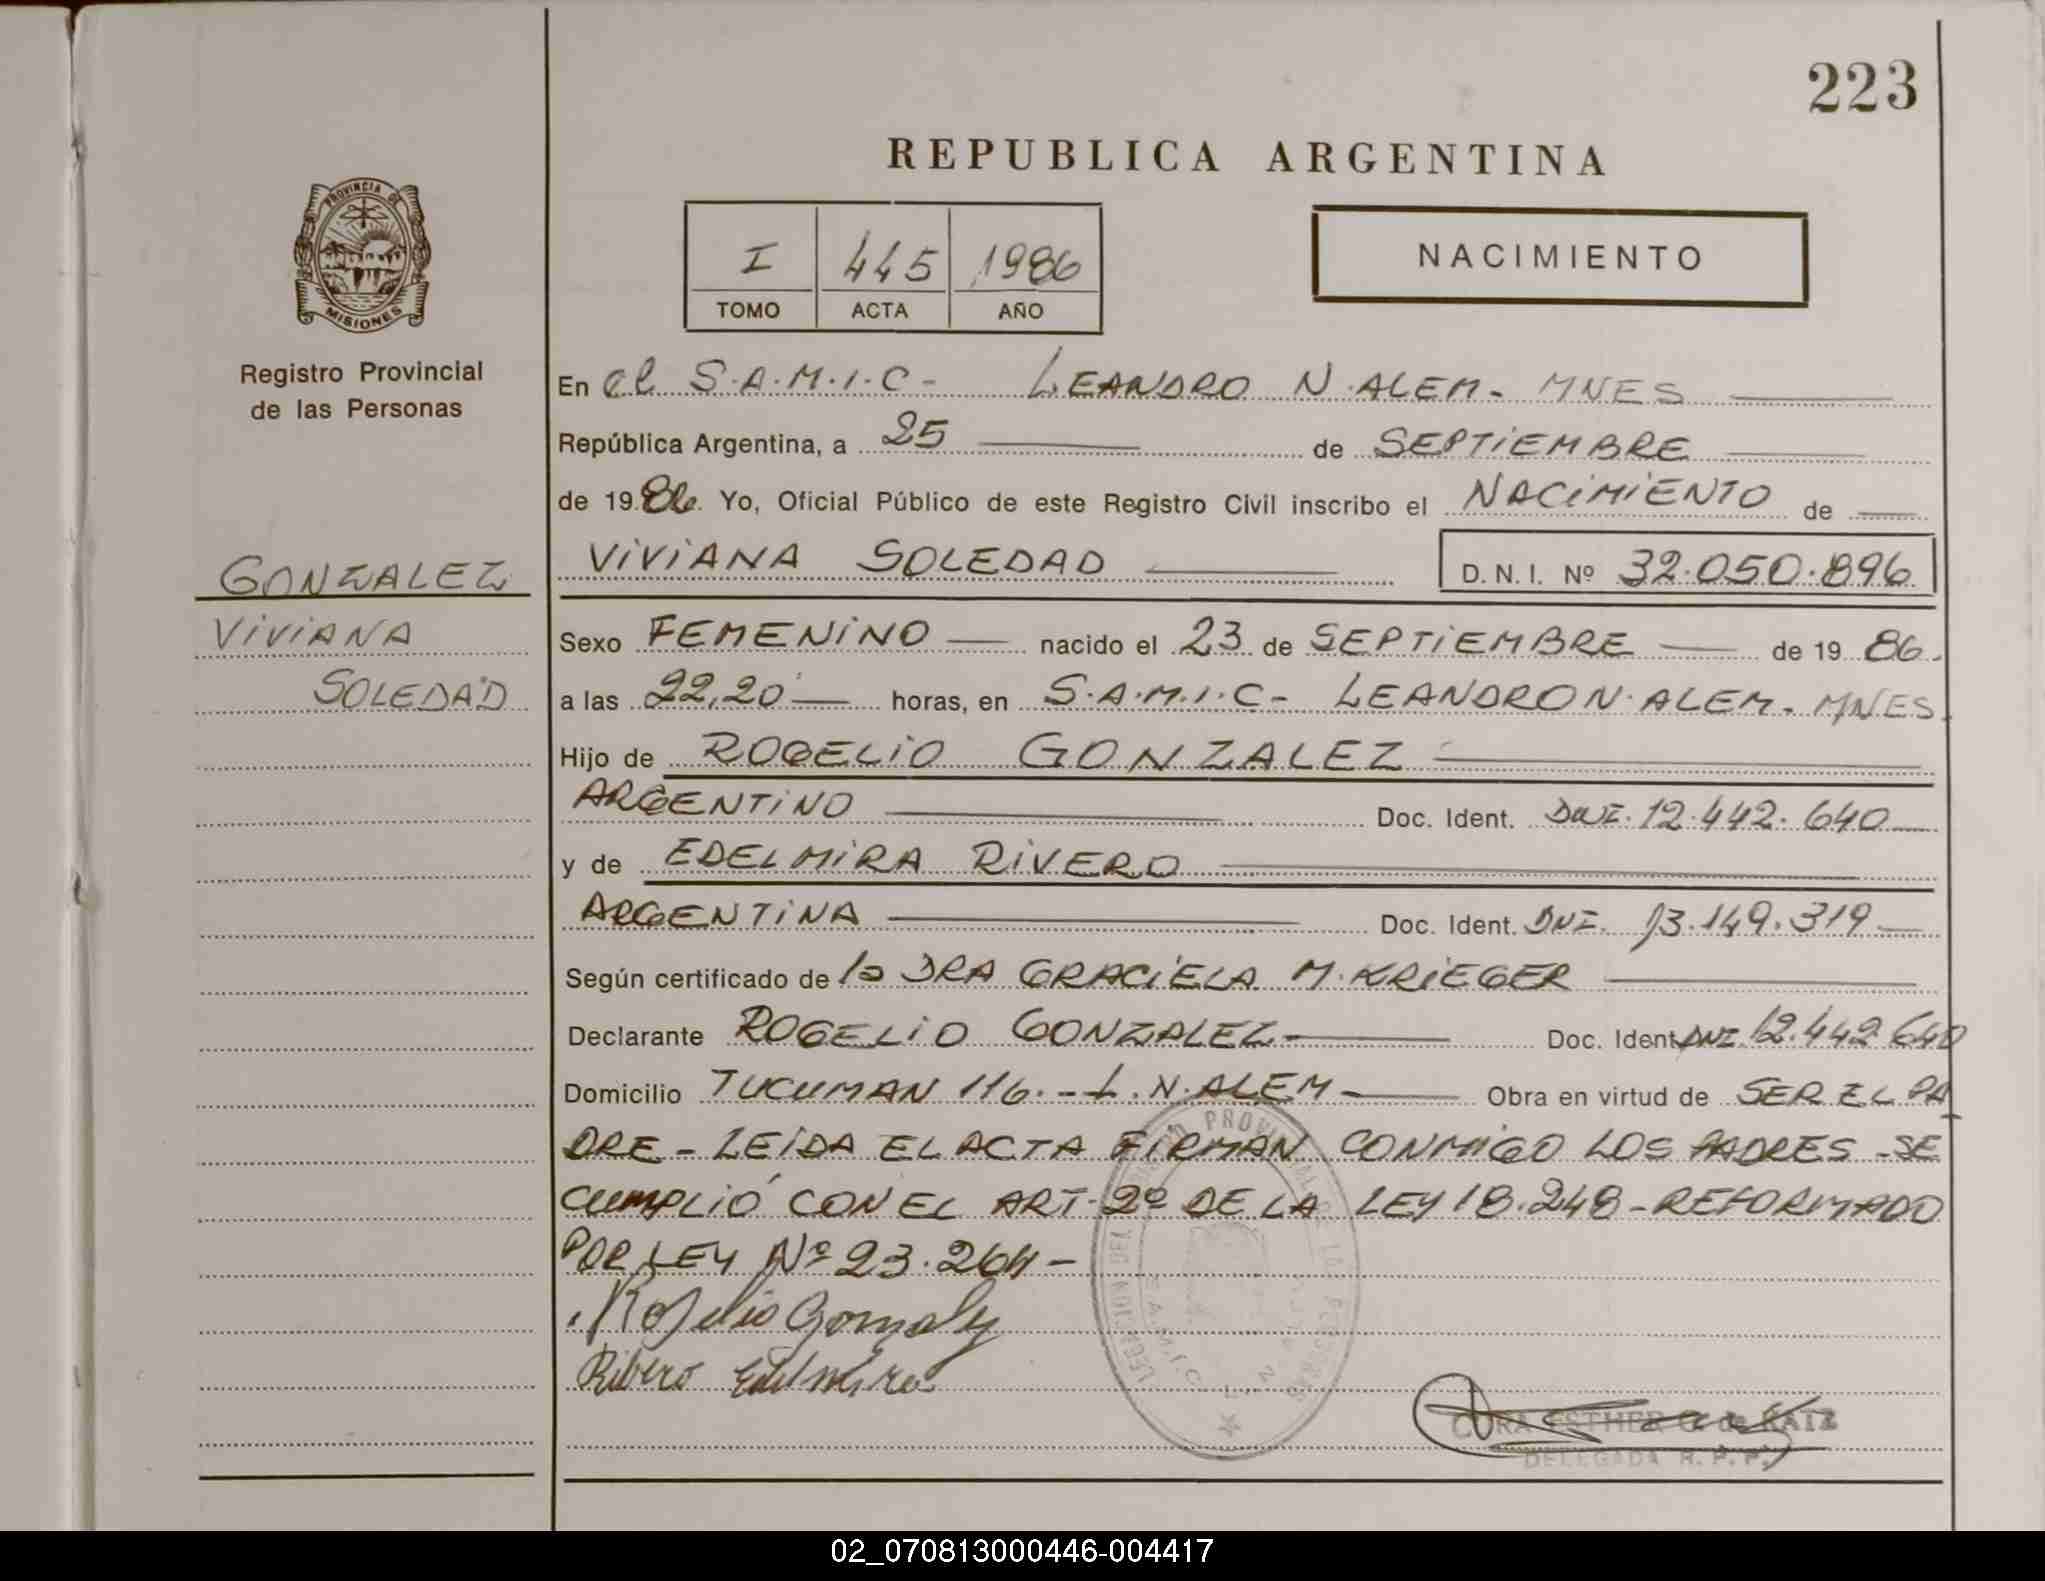 223
REPUBLICA ARGENTINA
PROVINCIA DE
MISIONES
I 445 1986
TOMO ACTA AÑO
NACIMIENTO
Registro Provincial
de las Personas
GONZALEZ
VIVIANA
SOLEDAD
En el S.A.M.I.C- LEANDRO N. ALEM- MNES
República Argentina, a 25 de SEPTIEMBRE
de 1986. Yo, Oficial Público de este Registro Civil inscribo el NACIMIENTO de
VIVIANA SOLEDAD D.N.I. Nº 32.050.896
Sexo FEMENINO nacido el 23 de SEPTIEMBRE de 1986.
a las 22,20 horas, en S.A.M.I.C- LEANDRO N. ALEM- MNES.
Hijo de ROGELIO GONZALEZ
ARGENTINO Doc. Ident. DNI. 12.442.640
y de EDELMIRA RIVERO
ARGENTINA Doc. Ident. DNI. 13.149.319
Según certificado de la DRA GRACIELA M. KRIEGER
Declarante ROGELIO GONZALEZ Doc. Ident. DNI 12.442.640
Domicilio TUCUMAN 116.-L.N.ALEM- Obra en virtud de SER EL PA
DRE - LEIDA EL ACTA FIRMAN CONMIGO LOS PADRES -SE
CUMPLIÓ CON EL ART. 2º DE LA LEY 18.248-REFORMADO
POR LEY Nº 23.264-
Rogelio Gonzalez
Ribero Edelmira
DELEGACION DEL REGISTRO PROVINCIAL DE LAS PERSONAS
S.A.M.I.C. L. N.
ESTHER G. de RATZ
DELEGADA R. P. P.
02_070813000446-004417